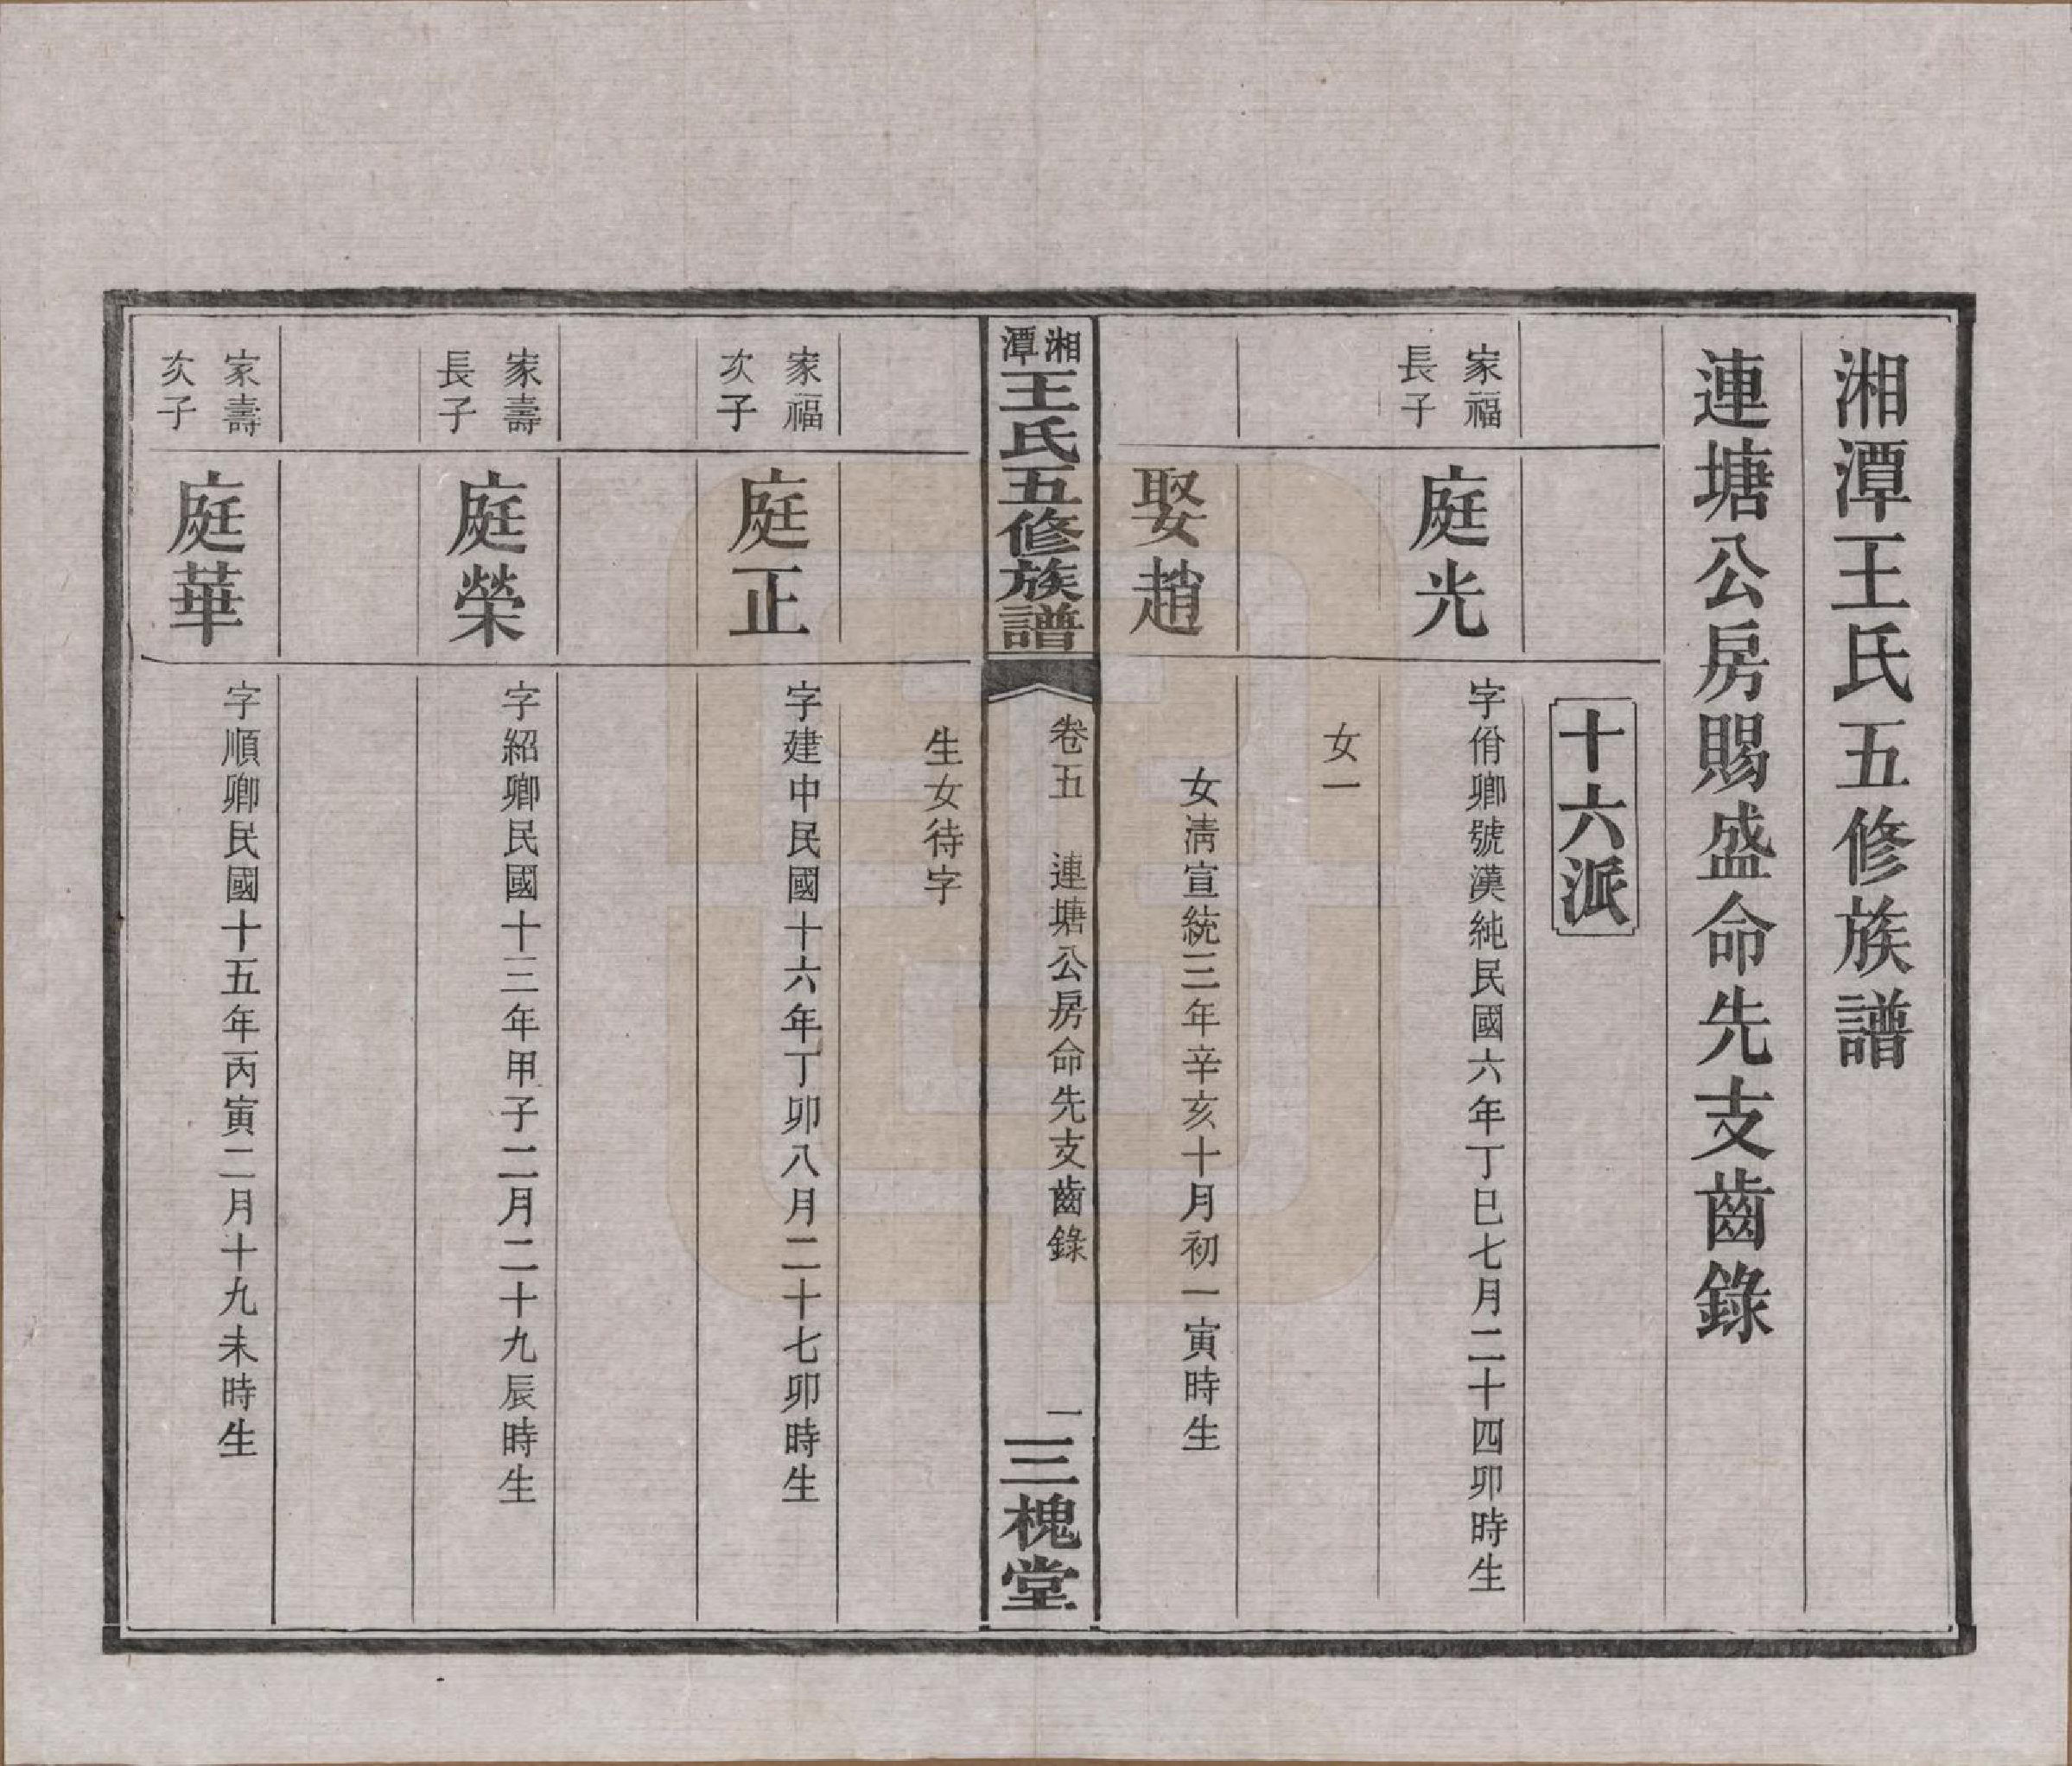 湘潭王氏五修族譜
連塘公房賜盛命先支齒錄
十六派
家福
長子
庭光
字佾卿號漢純民國六年丁巳七月二十四卯時生
女一
娶趙
女淸宣統三年辛亥十月初一寅時生
湘潭
王氏五修族譜
卷五
連塘公房命先支齒錄
一
三槐堂
生女待字
家福
次子
庭正
字建中民國十六年丁卯八月二十七卯時生
家壽
長子
庭榮
字紹卿民國十三年甲子二月二十九辰時生
家壽
次子
庭華
字順卿民國十五年丙寅二月十九未時生